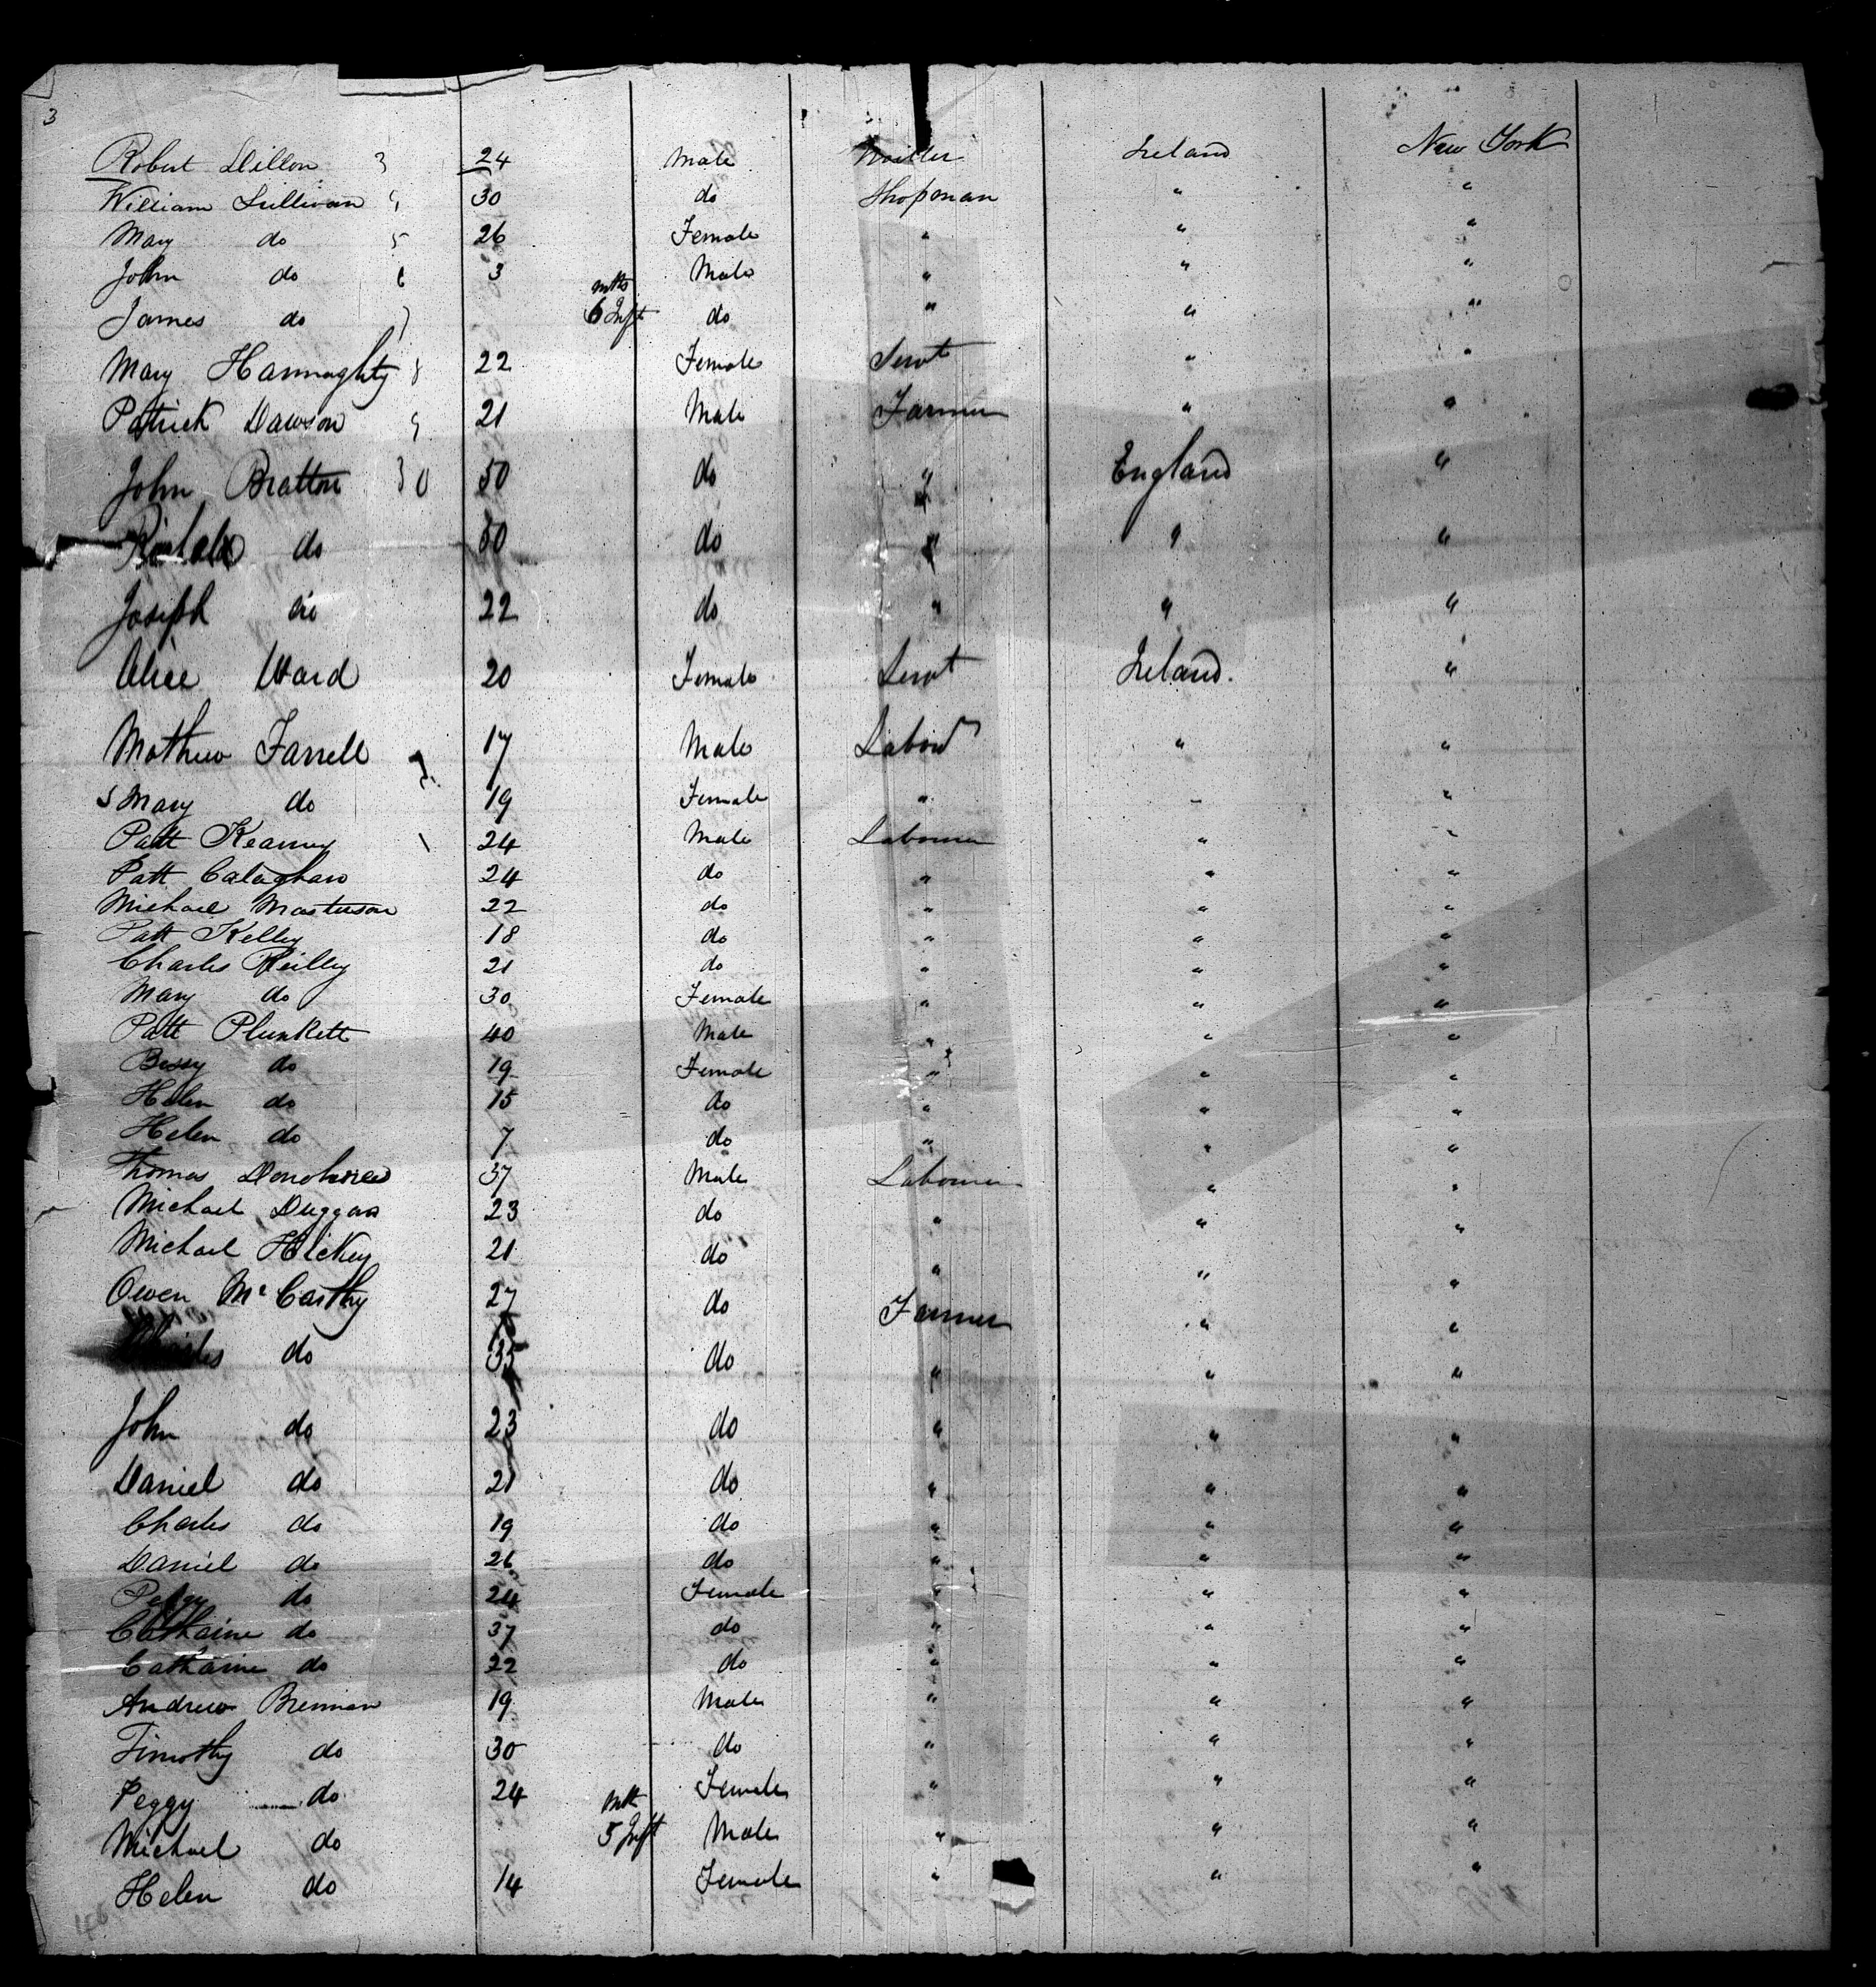 3
Robert Dillon 3 24 Male Ireland New York
William Sullivan 4 30 do Shopman " "
Mary do 5 26 Female " " "
John do 6 3 Male " " "
James do 7 6 mths Inft do " " "
Mary Hannaghty 8 22 Female Servt " "
Patrick Dawson 9 21 Male Farmer " "
John Bratton 30 50 do " England "
do 50 do " " "
Joseph do 22 do " " "
Alice Ward 20 Female Servt Ireland. "
Mathew Farrell 17 Male Labourr " "
Mary do 19 Female " " "
Patt Kearney 24 Male Labourer " "
Patt Calaghan 24 do " " "
Michael Masterson 22 do " " "
Patt Kelley 18 do " " "
Charles Reilly 21 do " " "
Mary do 30 Female " " "
Patt Plunkett 40 Male " " "
Bessy do 19 Female " " "
Helen do 15 do " " "
Helen do 7 do " " "
Thomas Donohue 37 Male Labourer " "
Michael Duggan 23 do " " "
Michael Hickey 21 do " " "
Owen McCarthy 27 do Farmer " "
do 35 do " " "
John do 23 do " " "
Daniel do 21 do " " "
Charles do 19 do " " "
Daniel do 26 do " " "
Peggy do 24 Female " " "
Catharine do 37 do " " "
Catharine do 22 do " " "
Andrew Brennan 19 Male " " "
Timothy do 30 do " " "
Peggy do 24 Female " " "
Michael do 5 mth Inft Male " " "
Helen do 14 Female " " "